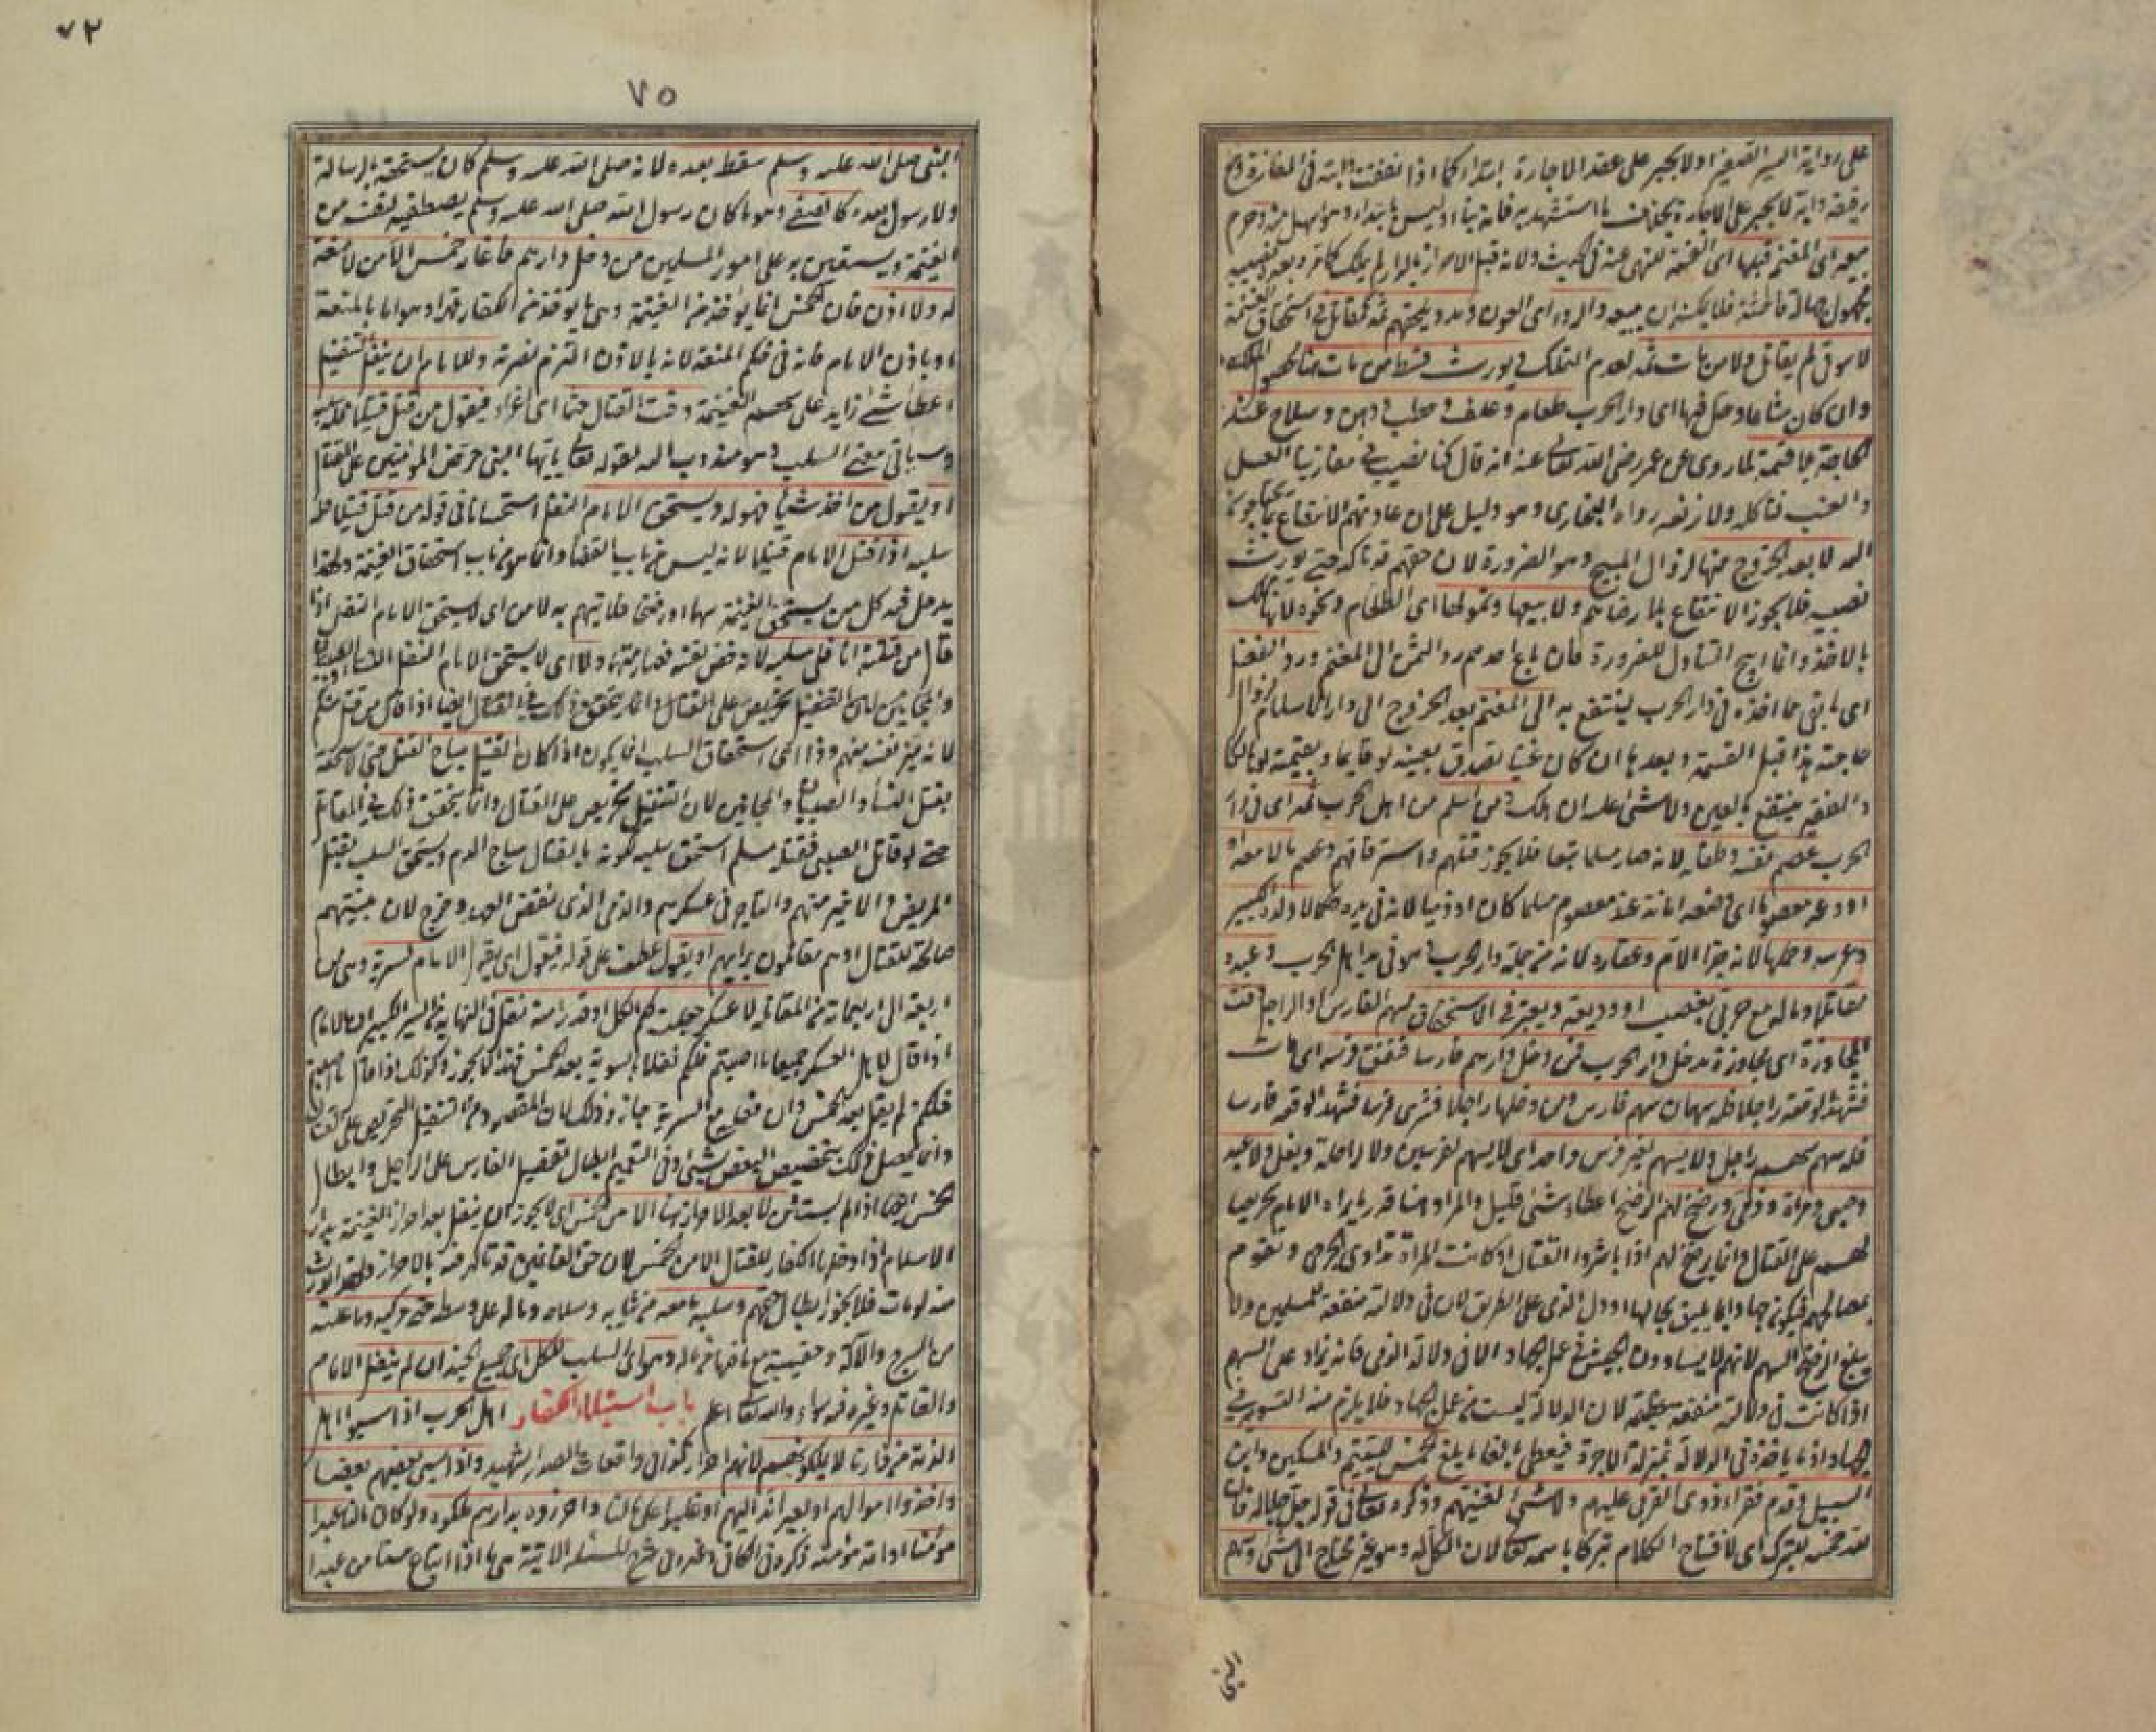 على رواية السير الصغير او لا يجبر على عقد الاجارة ابتداء كما اذا نفقت دابته في المفازة ومع
رفيقه دابة لا يجبر على الاجارة بخلاف ما استشهد به فانه بناء وليس بابتداء وهو اسهل منه وحرم
بيعه اى المغنم قبلها اى القسمة للنهى عنه فى الحديث ولانه قبل الاحراز بالدار لم يملك كما مر وبعده نصيبه
مجهول جهالة فاحشة فلا يمكنه ان يبيعه والردء اى العون ومدد يلحقهم ثمه كمقاتل فى استحقاق الغنيمة
لا سوقى لم يقاتل ولا من مات ثمه لعدم التملك ويورث قسط من مات هنا لحصول الملك
وان كان شاعا وحل فيها اى دار الحرب طعام وعلف وحطب ودهن وسلاح عند
الحاجة بلا قسمة لما روى عن عمر رضى الله تعالى عنه انه قال كنا نصيب فى مغازينا العسل
والعنب فنأكله ولا نرفعه رواه البخارى وهو دليل على ان عادتهم الانتفاع بما يحتاجون
اليه لا بعد الخروج منها لزوال المبيح وهو الضرورة لان حقهم قد تأكد حتى يورث
نصيبه فلا يجوز الانتفاع بلا رضاهم ولا بيعها وتمولها اى الطعام ونحوه لانها لا تملك
بالاخذ وانما ابيح التناول للضرورة فان باع احدهم رد الثمن الى المغنم ورد الفضل
اى ما بقى مما اخذه فى دار الحرب لينتفع به الى المغنم بعد الخروج الى دار الاسلام لزوال
حاجته هذا قبل القسمة وبعدها ان كان غنيا تصدق بعينه لو قائما وبقيمته لو هالكا
والفقير ينتفع بالعين ولا شئ عليه ان هلك ومن اسلم من اهل الحرب ثمه اى فى دار
الحرب عصم نفسه وطفله لانه صار مسلما تبعا فلا يجوز قتلهم واسترقاقهم وعصم مالا معه او
اودعه معصوما اى وضعه امانة عند معصوم مسلما كان او ذميا لانه فى يده حكما لا ولده الكبير
وعرسه وحملها لانه جزء الام وعقاره لانه من جملة دار الحرب فهو فى يد اهل الحرب وعبده
مقاتلا وماله مع حربى بغصب او وديعة ويعتبر فى الاستحقاق لسهم الفارس والراجل وقت
المجاوزة اى مجاوزة مدخل دار الحرب فمن دخل دارهم فارسا فنفق فرسه اى مات
فشهد الوقعة راجلا فله سهمان سهم فارس ومن دخلها راجلا فشرى فرسا فشهد الوقعة فارسا
فله سهم راجل ولا يسهم لغير فرس واحد اى لا يسهم لفرسين ولا لراحلة وبغل ولا عبد
وصبى وامرأة وذمى ورضخ لهم الرضخ اعطاء شئ قليل والمراد هنا قدر ما يراه الامام تحريضا
لهم على القتال وانما يرضخ لهم اذا باشروا القتال او كانت المرأة تداوى الجرحى وتقوم
بمصالحهم فيكون جهادا بما يليق بحالها او دل الذمى على الطريق لان فى دلالته منفعة للمسلمين ولا
يبلغ الرضخ السهم لانهم لا يساوون الجيش فى عمل الجهاد الا فى دلالة الذمى فانه يزاد على السهم
اذا كانت فى دلالته منفعة عظيمة لان الدلالة ليست من عمل الجهاد فلا يلزم منه التسوية فى
الجهاد اذ ما يأخذه فى الدلالة بمنزلة الاجرة فيعطى بالغا ما بلغ الخمس لليتيم والمسكين وابن
السبيل وقدم فقراء ذوى القربى عليهم ولا شئ لغنيهم وذكره تعالى فى قوله جل جلاله فان
لله خمسه للتبرك اى لافتتاح الكلام تبركا باسمه تعالى لان الكل له وهو غير محتاج الى شئ وسهم
النبى
٧٢
٧٥
النبى صلى الله عليه وسلم سقط بعده لانه صلى الله عليه وسلم كان يستحقه بالرسالة
ولا رسول بعده كالصفى وهو ما كان رسول الله صلى الله عليه وسلم يصطفيه لنفسه من
الغنيمة ويستعين به على امور المسلمين من دخل دارهم فاغار خمس الا من لا منعة
له ولا اذن فان الخمس انما يؤخذ من الغنيمة وهى ما يؤخذ من الكفار قهرا وهو اما بالمنعة
او باذن الامام فانه فى حكم المنعة لانه بالاذن التزم نصرته وللامام ان ينفل التنفيل
اعطاء شئ زايد على سهم الغنيمة وقت القتال حثا اى اغراء فيقول من قتل قتيلا فله سلبه
وسيأتى معنى السلب وهو مندوب اليه لقوله تعالى يايها النبى حرض المؤمنين على القتال
او يقول من اخذ شيئا فهو له ويستحق الامام النفل استحسانا فى قوله من قتل قتيلا فله
سلبه اذا قتل الامام قتيلا لانه ليس من باب القضاء وانما هو من باب استحقاق الغنيمة ولهذا
يدخل فيه كل من يستحق الغنيمة سهما او رضخا فلا يتهم به لا من اى لا يستحق الامام النفل اذا
قال من قتلته انا فلى سلبه لانه خص نفسه فصار متهما ولا اى لا يستحق الامام النفل النساء والصبيان
والمجانين لان التنفيل تحريض على القتال وانما يتحقق ذلك فى القتال ايضا اذا قال من قتل منكم
لانه ميز نفسه منهم وذا اى استحقاق السلب انما يكون اذا كان القتيل مباح القتل حتى لا يستحقه
بقتل النساء والصبيان والمجانين لان التنفيل تحريض على القتال وانما يتحقق ذلك فى المقاتل
حتى لو قاتل الصبى فقتله مسلم استحق سلبه لكونه بالقتال مباح الدم ويستحق السلب بقتل
المريض والاجير منهم والتاجر فى عسكرهم والذمى الذى نقض العهد وخرج لان بنيتهم
صالحة للقتال او هم مقاتلون برايهم او يقول عطف على قوله فيقول اى يقول الامام لسرية وهى من
اربعة الى اربعمائة من المقاتلة لا عسكر جعلت لكم الكل او قدرا منه نقل فى النهاية من السير الكبير ان الامام
اذا قال لاهل العسكر جميعا ما اصبتم فلكم نفلا بالسوية بعد الخمس فهذا لا يجوز وكذلك اذا قال ما اصبتم
فلكم ولم يقل بعد الخمس وان فعله مع السرية جاز وذلك لان المقصود من التنفيل التحريض على القتال
وانما يحصل ذلك بتخصيص البعض بشئ وفى التعميم ابطال تفضيل الفارس على الراجل وابطال
الخمس ايضا اذا لم يستثن لا بعد الاحراز هنا الا من الخمس اى لا يجوز ان ينفل بعد احراز الغنيمة بدار
الاسلام اذا دخلها الكفار للقتال الا من الخمس لان حق الغانمين قد تأكد فيه بالاحراز ولهذا يورث
منه لو مات فلا يجوز ابطال حقهم وسلبه ما معه من ثيابه وسلاحه وماله على وسطه ومركبه وما عليه
من السرج والآلة وحقيبته مع ما فيها من ماله وهو اى السلب للكل اى جميع الجند ان لم ينفل الامام
والقاتل وغيره فيه سواء والله تعالى اعلم باب استيلاء الكفار اهل الحرب اذا سبوا اهل
الذمة من دارنا لا يملكونهم لانهم احرار كذا فى واقعات الصدر الشهيد واذا سبى بعضهم بعضا
واخذوا اموالهم او بعيرا ند اليهم او غلبوا على مالنا واحرزوه بدارهم ملكوه ولو كان مالنا عبدا
مؤمنا او امة مؤمنة ذكره فى الكافى وغيره فى شرح المسئلة الآتية هى ما اذا ابتاع مستأمن عبدا